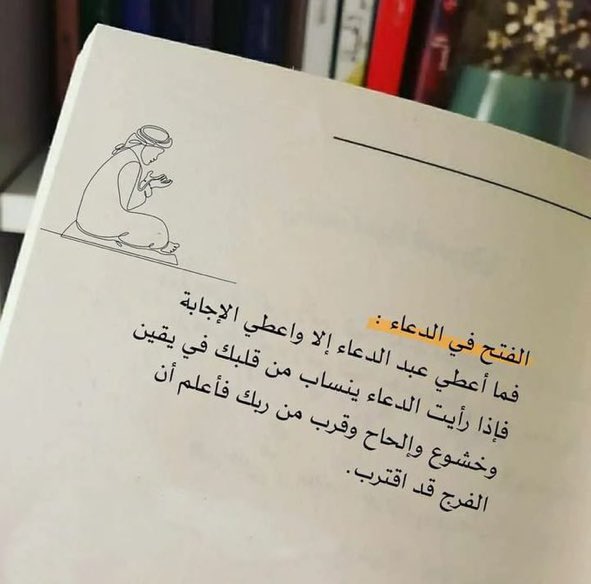 الفتح في الدعاء :
فما أعطي عبد الدعاء إلا واعطي الإجابة
فإذا رأيت الدعاء ينساب من قلبك في يقين
وخشوع وإلحاح وقرب من ربك فأعلم أن
الفرج قد اقترب.